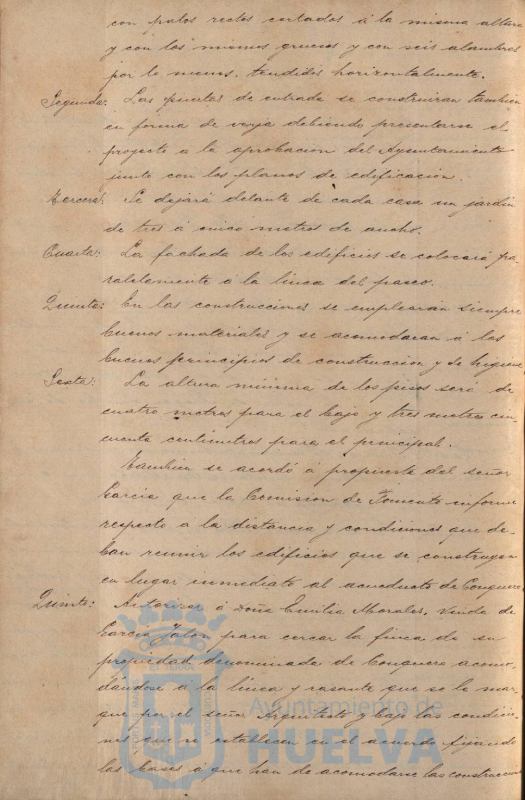 con palos rectos cortados á la misma altura
y con los mismos gruesos y con seis alambres
por lo menos, tendidos horizontalmente.
Segunda: Las puertas de entrada se construiran tambien
en forma de verja debiendo presentarse el
proyecto a la aprobacion del Ayuntamiento
junto con los planos de edificacion.
Tercera: Se dejará delante de cada casa un jardin
de tres á cinco metros de ancho.
Cuarta: La fachada de los edificios se colocará pa-
ralelamente á la linea del paseo.
Quinta: En las construcciones se emplearán siempre
buenos materiales y se acomodaran á los
buenos principios de construccion y de higiene.
Sexta: La altura mínima de los pisos será de
cuatro metros para el bajo y tres metros cin-
cuenta centímetros para el principal.
Tambien se acordó á propuesta del señor
García que la Comision de Fomento informe
respecto a la distancia y condiciones que de-
ban reunir los edificios que se construyan
en lugar inmediato al acueducto de Conquero.
Quinto: Autorizar á Doña Emilia Morales, Viuda de
García Jalon para cercar la finca de su
propiedad denominada de Conquero acomo-
dándose á la linea y rasante que se le mar-
que por el señor Arquitecto y bajo las condicio-
nes que se establecen en el acuerdo fijando
las bases á que han de acomodarse las construcciones
Ayuntamiento de
HUELVA